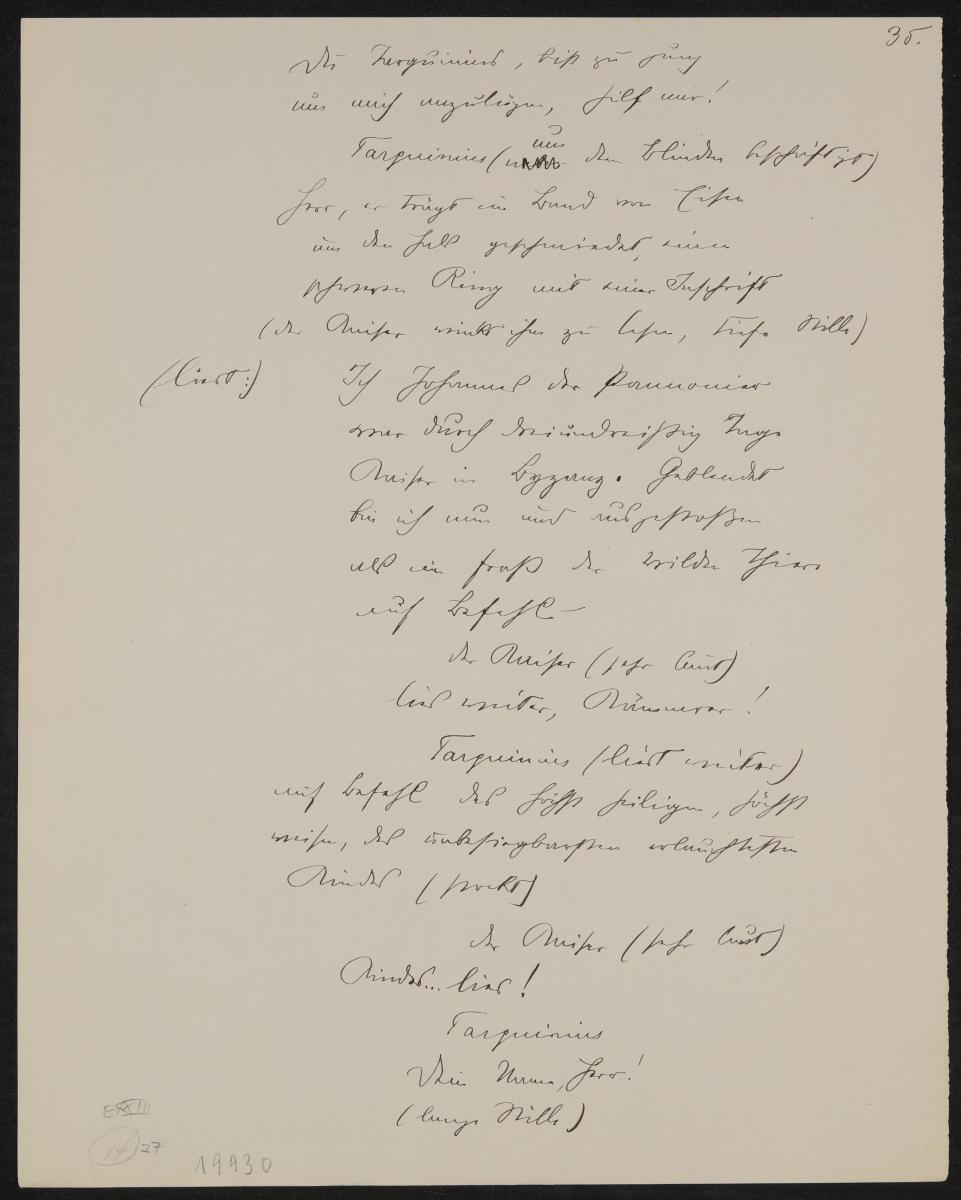 35.
Du Tarquinius, bist zu jung
um mich anzulügen, hilf mir!
um
Tarquinius (um den Blinden beschäftigt)
Herr, er trägt ein Band von Eisen
um den Hals geschmiedet, einen
schweren Ring mit einer Inschrift
(der Kaiser winkt ihm zu lesen, tiefe Stille)
(liest:) Ich Johannes der Pannonier
war durch dreiunddreissig Tage
Kaiser in Byzanz. Geblendet
bin ich nun und ausgestoßen
als ein Fraß der wilden Thiere
auf Befehl –
der Kaiser (sehr laut)
lies weiter, Kämmerer!
Tarquinius (liest weiter)
auf Befehl des höchst heiligen, höchst
weisen, des unbesiegbarsten erlauchtesten
Kindes (stockt)
der Kaiser (sehr laut)
Kindes... lies!
Tarquinius
Dein Name, Herr!
(lange Stille)
EXXIII
14 27
19930